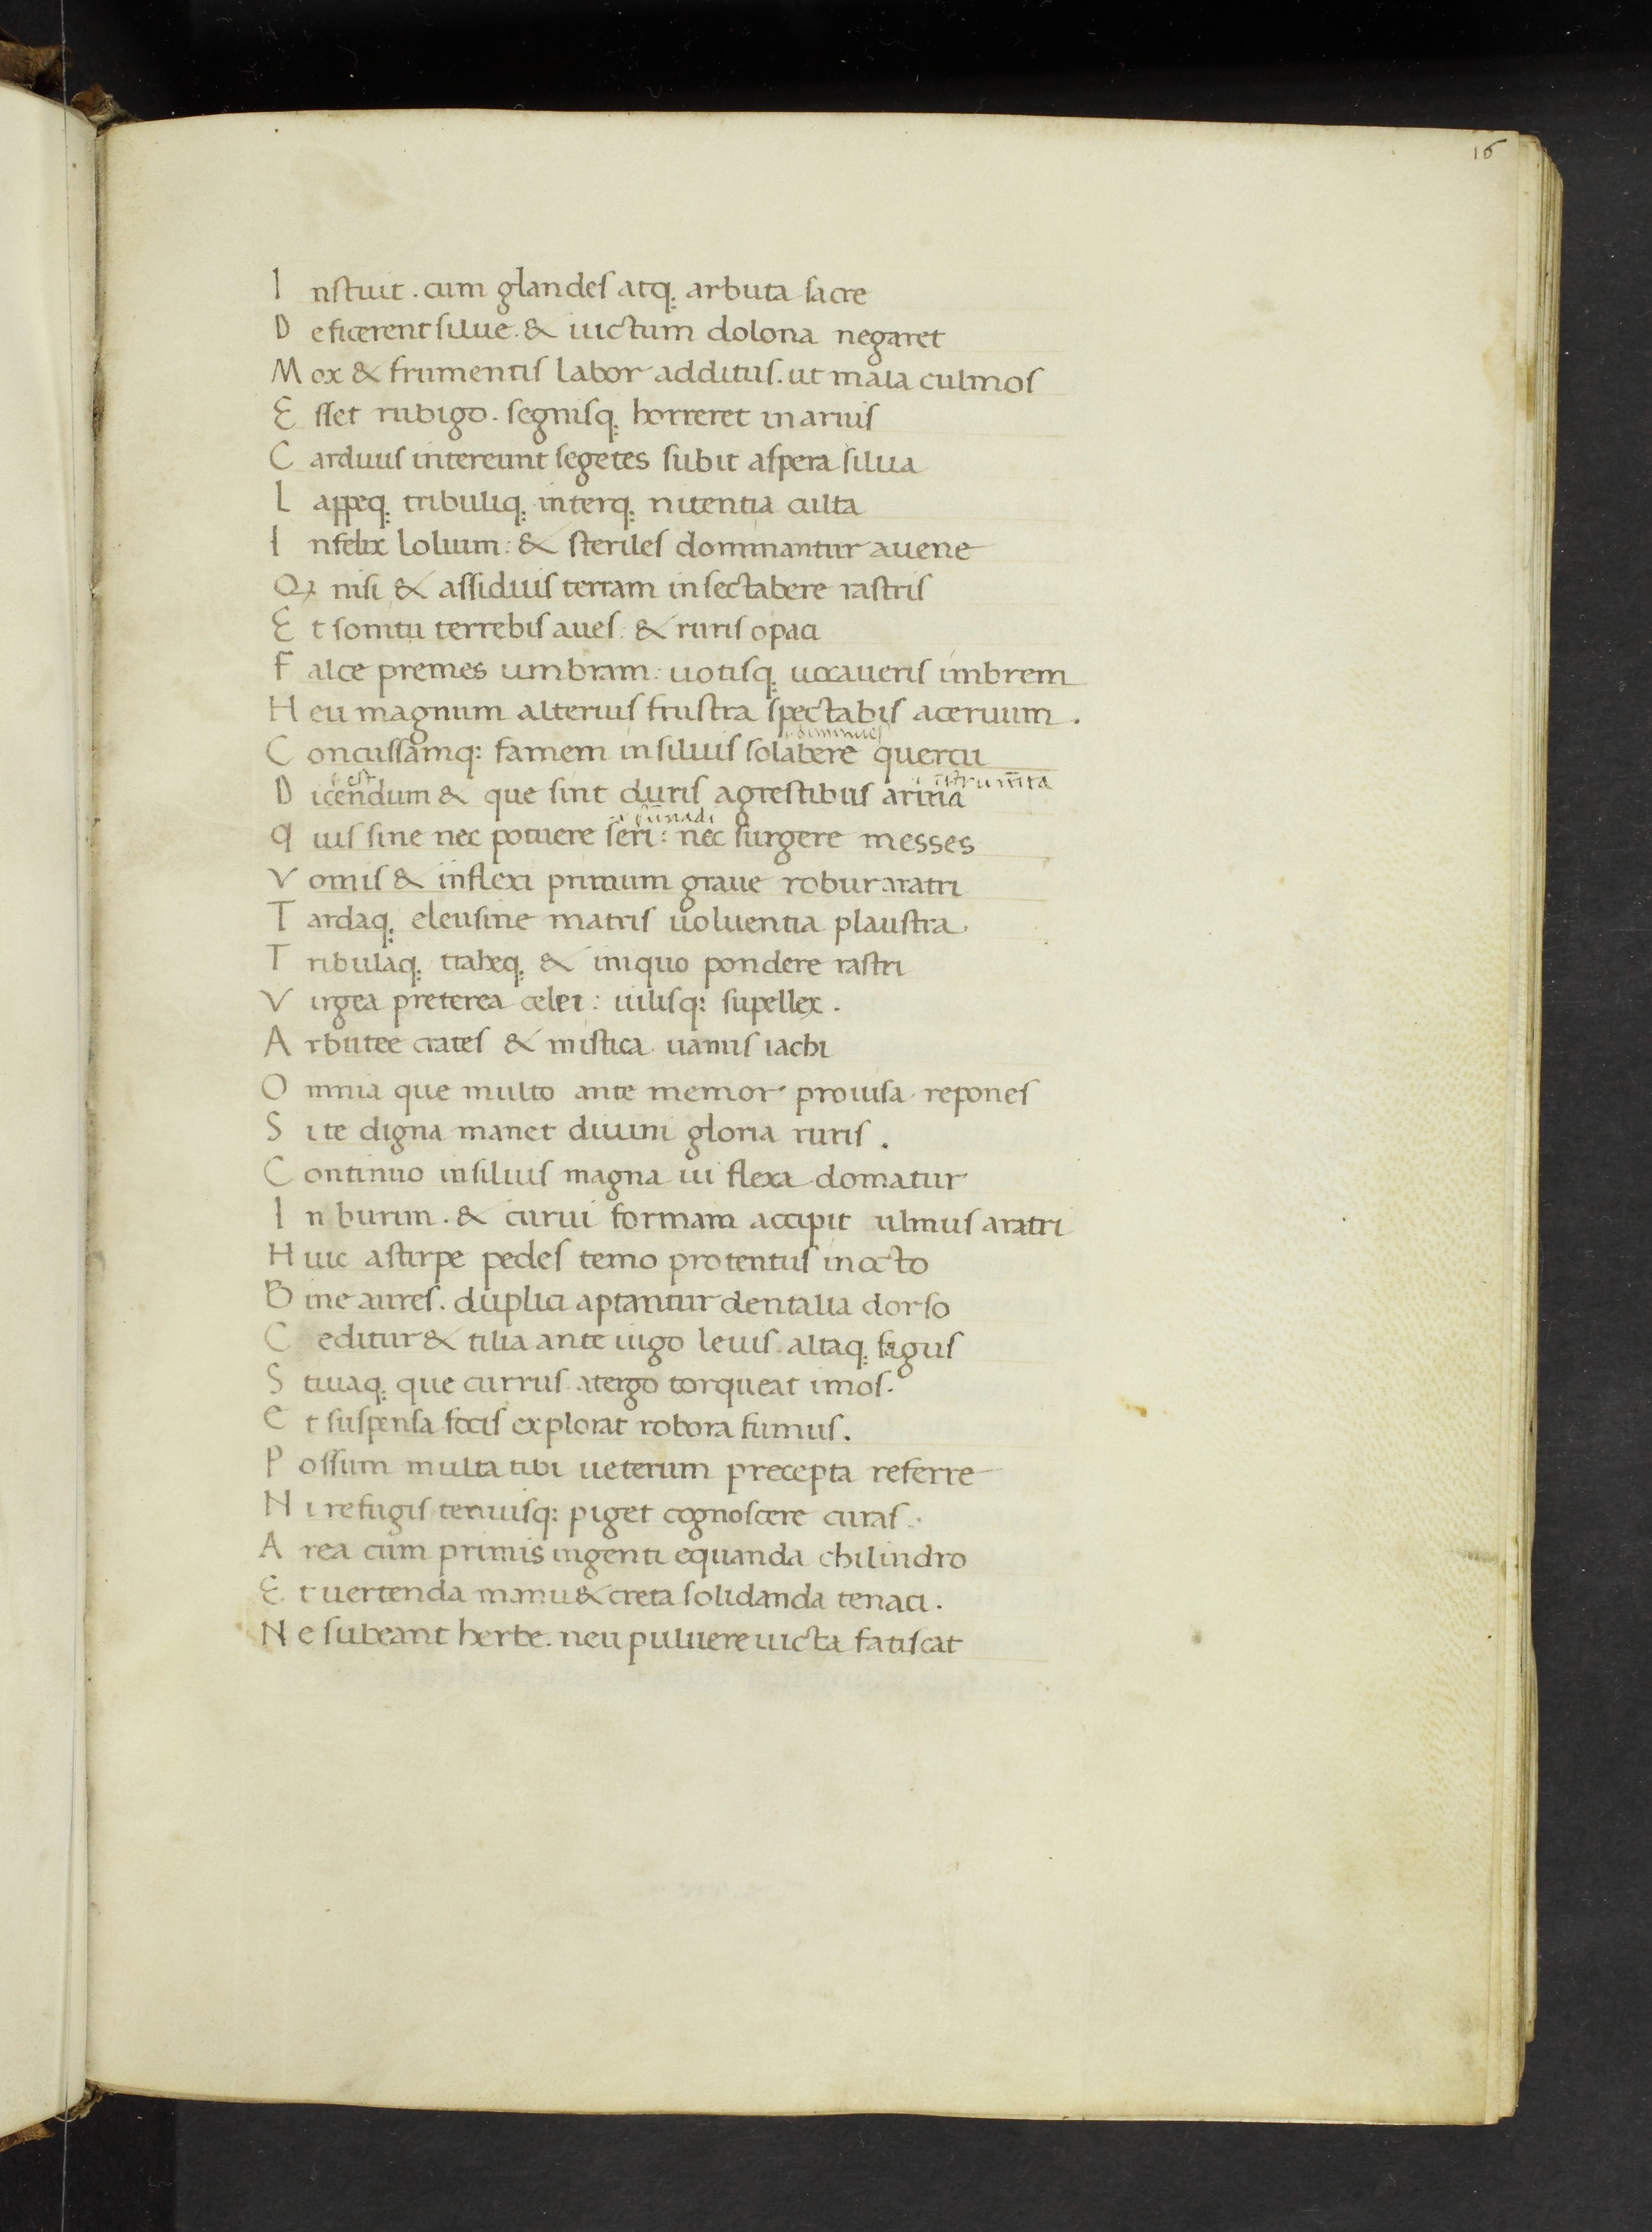 16
Instituit. cum glandes atq; arbuta sacre
Deficerent silue. & uictum dolona negaret
Mox & frumentis labor additus. ut mala culmos
Esset rubigo. segnisq; horreret in aruis
Carduus intereunt segetes subit aspera silua
Lappeq; tribuliq; interq; nitentia culta
Infelix lolium: & steriles dominantur avene
Qꝫ nisi & assiduis terram insectabere rastris
Et sonitu terrebis aues: & ruris opaci
Falce premes umbram: uotisq; uocaueris imbrem
Heu magnum alterius frustra spectabis aceruum.
Concussamq: famem in siluis solabere quercu
est i instrum̅ta
Dicendum & que sint duris agrestibus arma
quis sine nec potuere seri: nec surgere messes
Vomis & inflexi primum graue robur aratri
Tardaq; eleusine matris uoluentia plaustra.
Tribulaq; traheq; & iniquo pondere rastri
Virgea preterea celei: uilisq: supellex.
Arbutee crates & mistica uanus iachi
Omnia que multo ante memor prouisa repones
Si te digna manet diuini gloria ruris.
Continuo in siluis magna ui flexa domatur
In burim. & curui formam accipit ulmus aratri
Huic astirpe pedes temo protentus in octo
Bine aures. duplici aptantur dentalia dorso
Ceditur & tilia ante iugo leuis altaq; fagus
Stiuaq; que currus atergo torqueat imos.
Et suspensa focis explorat robora fumus.
Possum multa tibi ueterum precepta referre
Ni refugis tenuisq: piget cognoscere curas.
Area cum primis ingenti equanda chilindro
Et uertenda manu & creta solidanda tenaci.
Ne subeant herbe. neu puluere uicta fatiscat